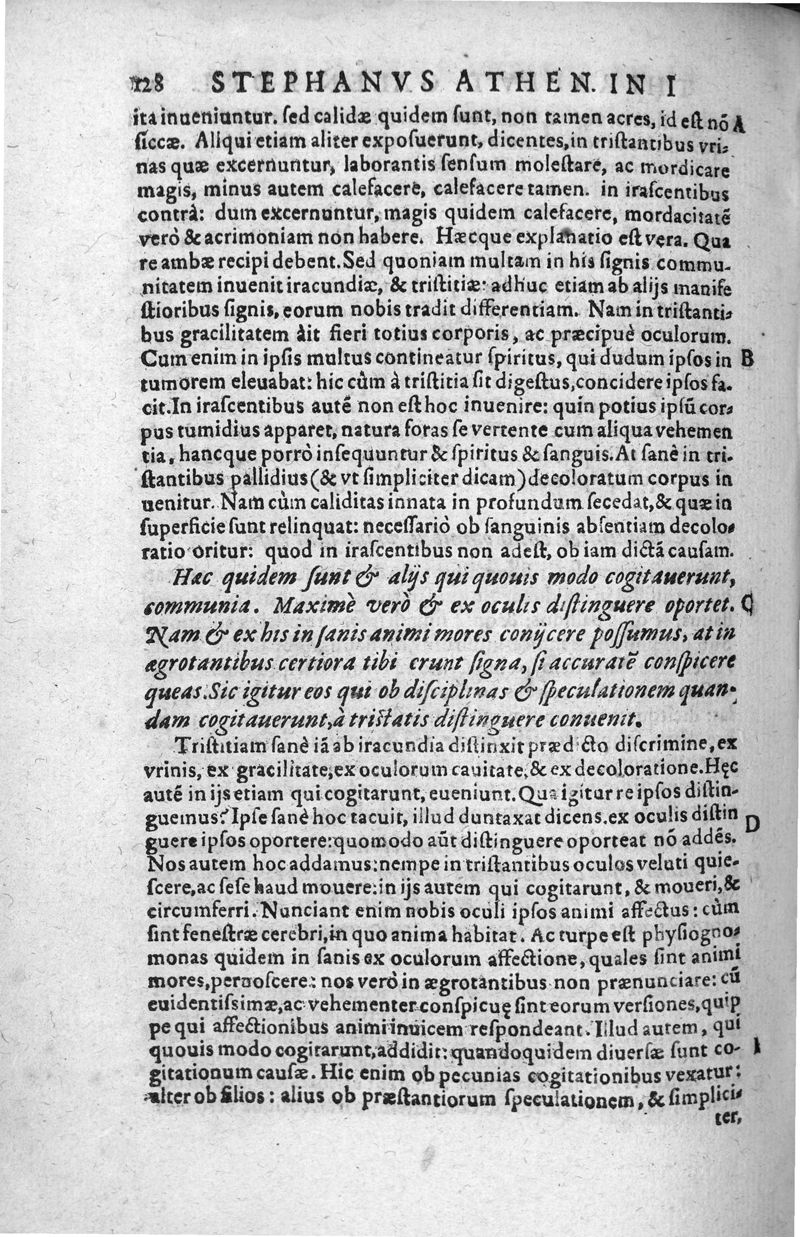 128 STEPHANVS ATHEN. IN I
ita inueniuntur. ſed calidæ quidem ſunt, non tamen acres, id eſt nō A
ſiccæ. Aliqui etiam aliter expoſuerunt, dicentes, in triſtantibus vri-
nas quæ excernuntur, laborantis ſenſum moleſtare, ac mordicare
magis, minus autem calefacere, calefacere tamen. in iraſcentibus
contrà: dum excernuntur, magis quidem calefacere, mordacitatē
verò & acrimoniam non habere. Hæcque explanatio eſt vera. Qua
re ambæ recipi debent. Sed quoniam multam in his ſignis commu-
nitatem inuenit iracundiæ, & triſtitiæ: adhuc etiam ab alijs manife
ſtioribus ſignis, eorum nobis tradit differentiam. Nam in triſtanti-
bus gracilitatem ait fieri totius corporis, ac præcipuè oculorum.
Cum enim in ipſis multus contineatur ſpiritus, qui dudum ipſos in B
tumorem eleuabat: hic cùm à triſtitia ſit digeſtus, concidere ipſos fa-
cit. In iraſcentibus autē non eſt hoc inuenire: quin potius ipſū cor-
pus tumidius apparet, natura foras ſe vertente cum aliqua vehemen
tia, hancque porrò inſequuntur & ſpiritus & ſanguis. At ſanè in tri-
ſtantibus pallidius (& vt ſimpliciter dicam) decoloratum corpus in
uenitur. Nam cùm caliditas innata in profundum ſecedat, & quæ in
ſuperficie ſunt relinquat: neceſſariò ob ſanguinis abſentiam decolo-
ratio oritur: quod in iraſcentibus non adeſt, ob iam dictā cauſam.
Hac quidem ſunt & alijs qui quouis modo cogitauerunt,
communia. Maximè verò & ex oculis diſtinguere oportet. C
Nam & ex his in ſanis animi mores conijcere poſſumus, at in
ægrotantibus certiora tibi erunt ſigna, ſi accuratē conſpicere
queas. Sic igitur eos qui ob diſciplinas & ſpeculationem quan-
dam cogitauerunt, à triſtatis diſtinguere conuenit.
Triſtitiam ſanè iā ab iracundia diſtinxit prædicto diſcrimine, ex
vrinis, ex gracilitate, ex oculorum cauitate, & ex decoloratione. Hęc
autē in ijs etiam qui cogitarunt, eueniunt. Qua igitur re ipſos diſtin-
guemus? Ipſe ſanè hoc tacuit, illud duntaxat dicens. ex oculis diſtin D
guere ipſos oportere: quomodo aūt diſtinguere oporteat nō addēs.
Nos autem hoc addamus: nempe in triſtantibus oculos veluti quie-
ſcere, ac ſeſe haud mouere: in ijs autem qui cogitarunt, & moueri, &
circumferri. Nunciant enim nobis oculi ipſos animi affectus: cùm
ſint feneſtræ cerebri, in quo anima habitat. Ac turpe eſt phyſiogno-
monas quidem in ſanis ex oculorum affectione, quales ſint animi
mores, pernoſcere: nos verò in ægrotantibus non prænunciare: cū
euidentiſsimæ, ac vehementer conſpicuę ſint eorum verſiones, quip
pe qui affectionibus animi inuicem reſpondeant. Illud autem, qui
quouis modo cogitarunt, addidit: quandoquidem diuerſæ ſunt co-
gitationum cauſæ. Hic enim ob pecunias cogitationibus vexatur:
alter ob filios: alius ob præſtantiorum ſpeculationem, & ſimplici-
ter,